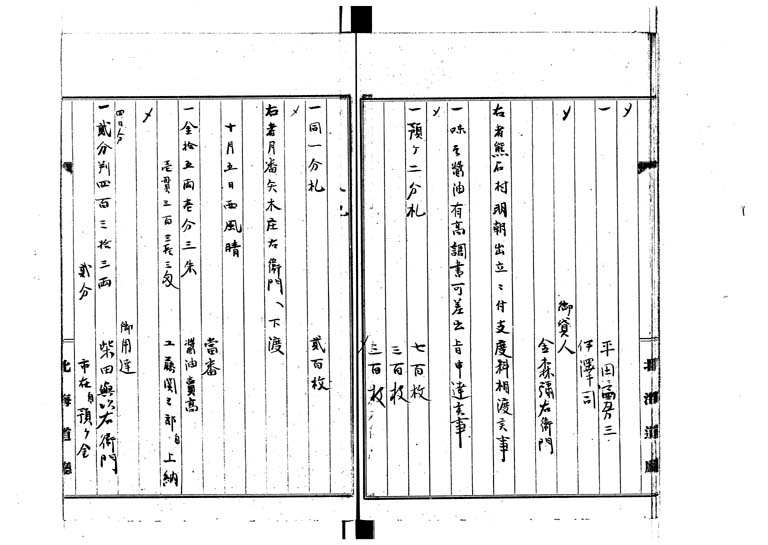 一
平田富弥三
伊澤司
御貸人
金森弥右衛門
右者熊石村明朝出立ニ付支度料相渡 事
一味噌醤油有高調書可差出旨申達 事
一預ケ二分札
七百枚
三百枚
三百枚
一同一分札
貳百枚
右者月番矢木庄右衛門ヘ下渡
十月五日西風晴
當番
一金拾五両壱分三朱
醤油賣高
壱貫三百三拾三匁
工藤関三郎ゟ上納
御用達
一貳分判四百三拾三両
柴田與次右衛門
四日分
貳分
市在ゟ預ケ金
北海道廳
北海道廳